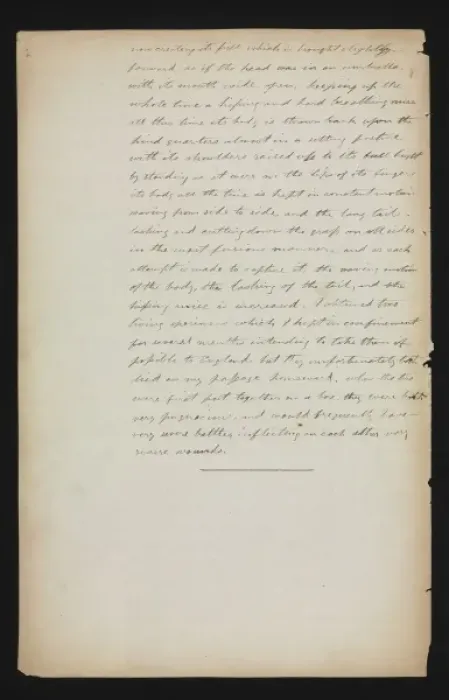 now creeting its frill which is brought slightly
forward as if the head was in an umbrella
with its mouth wide open, keeping up the
whole time a hissing and hard breathing noise
all this time its body is thrown back upon the
hind quarters almost in a sitting posture
with its shoulders raised up to its full height
by standing as it were on the tips of its fingers
its body all the time is kept in constant motion
waving from side to side and the long tail
lashing and cutting down the grass on all sides
in the most furious manner, and as each
attempt is made to capture it, the waving motion
of the body, the lashing of the tail, and the
hissing noise is increased. I obtained two
living specimens which I kept in confinement
for several months intending to take them if
possible to England but they unfortunately both
died on my passage homeward, when the two
were first put together in a box they were both
very pugnacious, and would frequently have
very severe battles inflicting on each other very
severe wounds.